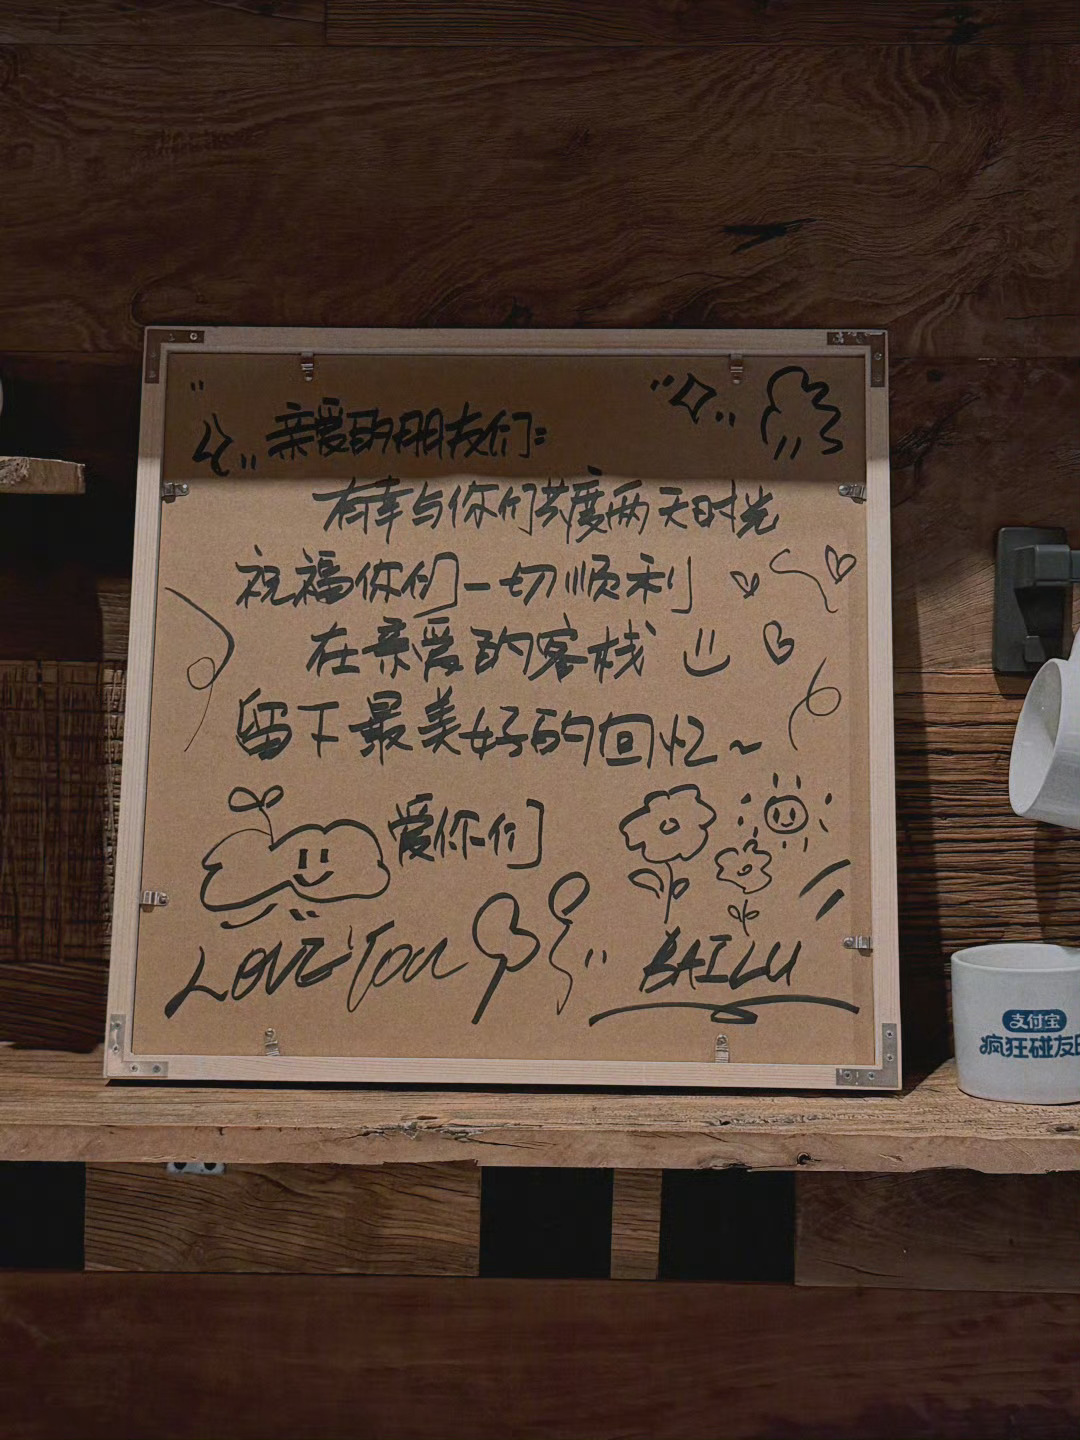 亲爱的朋友们:
有幸与你们共度两天时光
祝福你们一切顺利
在亲爱的客栈
留下最美好的回忆~
爱你们
LOVE You
BAILU
支付宝
疯狂碰友